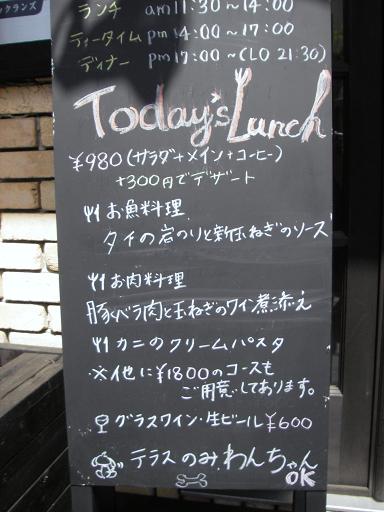 ランチ am11:30～14:00
ティータイム pm14:00～17:00
ディナー pm17:00～(LO 21:30)
Today's Lunch
¥980(サラダ+メイン+コーヒー)
+300円でデザート
お魚料理
タイの岩のりと新玉ねぎのソース
お肉料理
豚バラ肉と玉ねぎのワイン煮添え
カニのクリームパスタ
※他に¥1800のコースも
ご用意しております。
グラスワイン・生ビール¥600
テラスのみ、わんちゃん
OK